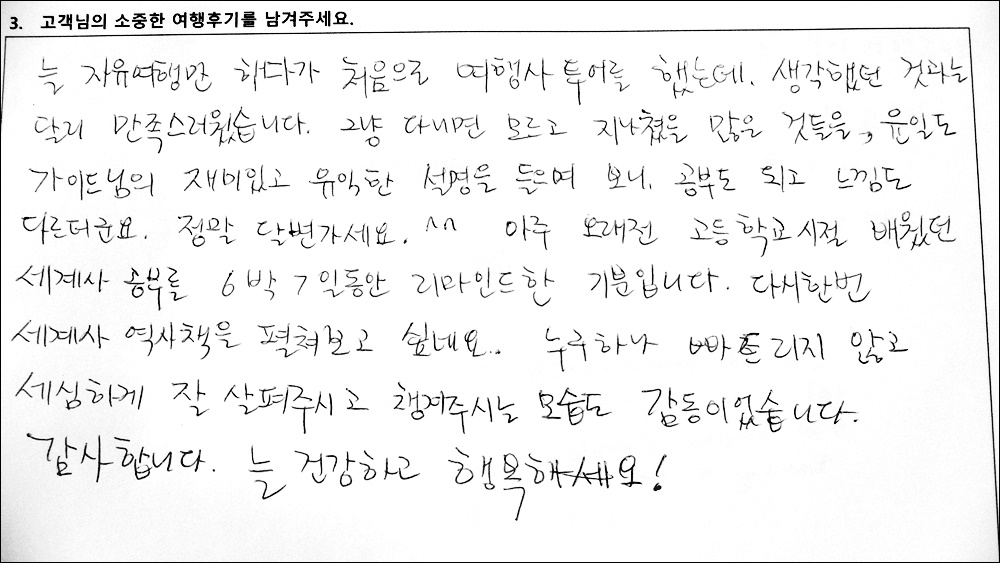 3. 고객님의 소중한 여행후기를 남겨주세요.
늘 자유여행만 하다가 처음으로 여행사 투어를 했는데, 생각했던 것과는
달리 만족스러웠습니다. 그냥 다니면 모르고 지나쳤을 많을 것들을, 윤일도
가이드님의 재미있고 유익한 설명을 들으며 보니, 공부도 되고 느낌도
다르더군요. 정말 달변가세요. ^^ 아주 오래전 고등학교시절 배웠던
세계사 공부를 6박 7일동안 리마인드한 기분입니다. 다시한번
세계사 역사책을 펼쳐보고 싶네요.. 누구하나 빠트리지 않고
세심하게 잘 살펴주시고 챙겨주시는 모습도 감동이었습니다.
감사합니다. 늘 건강하고 행복하세요!